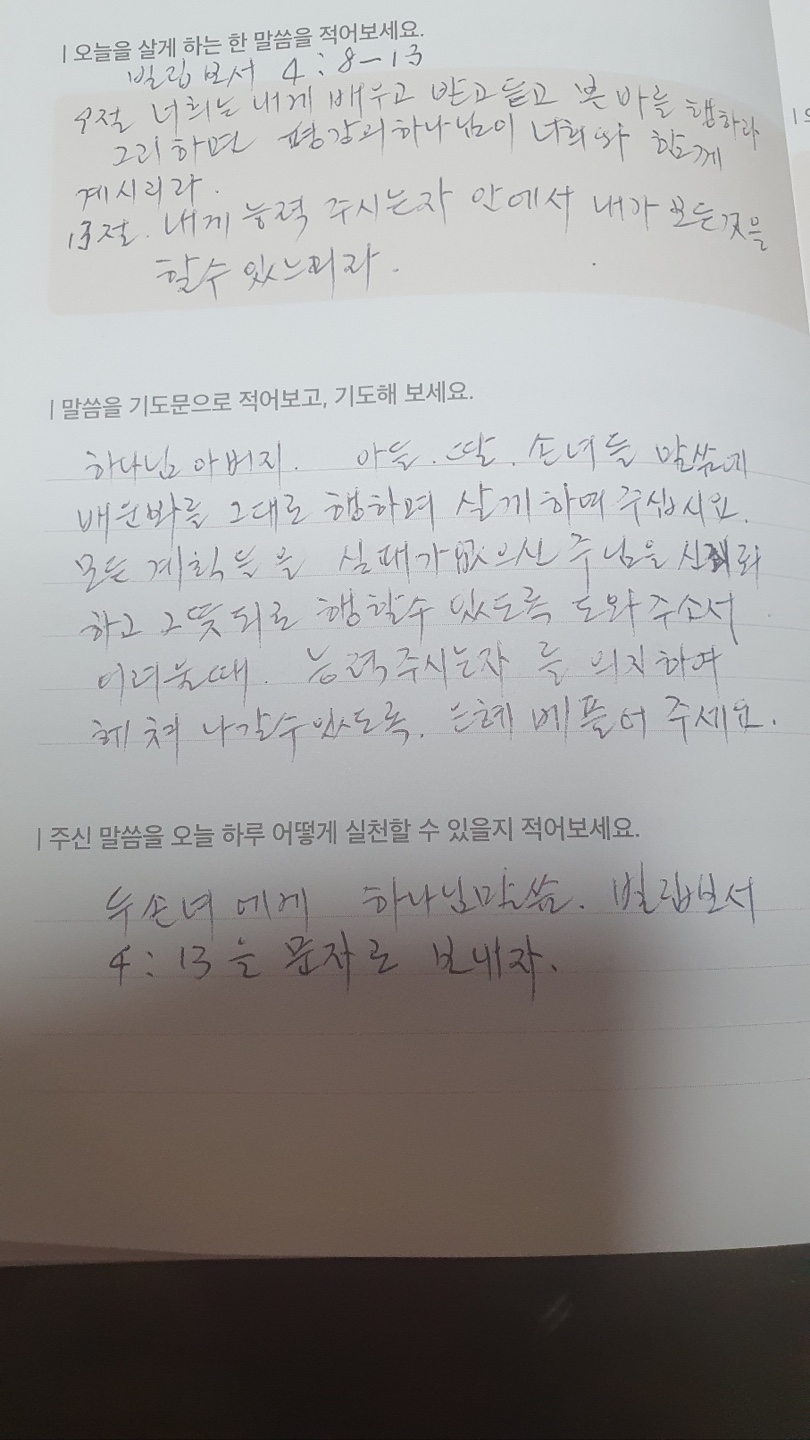 | 오늘을 살게 하는 한 말씀을 적어보세요.
빌립보서 4:8-13
9절 너희는 내게 배우고 받고 듣고 본 바를 행하라
그리하면 평강의 하나님이 너희와 함께
계시리라.
13절. 내게 능력 주시는자 안에서 내가 모든것을
할수 있느니라.
| 말씀을 기도문으로 적어보고, 기도해 보세요.
하나님 아버지. 아들. 딸. 손녀들 말씀에
배운바를 그대로 행하며 살게하여 주십시요.
모든 계획들을 실패가없으신 주님을 신뢰
하고 그뜻되로 행할수 있도록 도와주소서
어려울때. 능력주시는자 를 의지하여
헤쳐 나갈수있도록. 은혜 베플어 주세요.
| 주신 말씀을 오늘 하루 어떻게 실천할 수 있을지 적어보세요.
두손녀에게 하나님말씀. 빌립보서
4:13을 문자로 보내자.